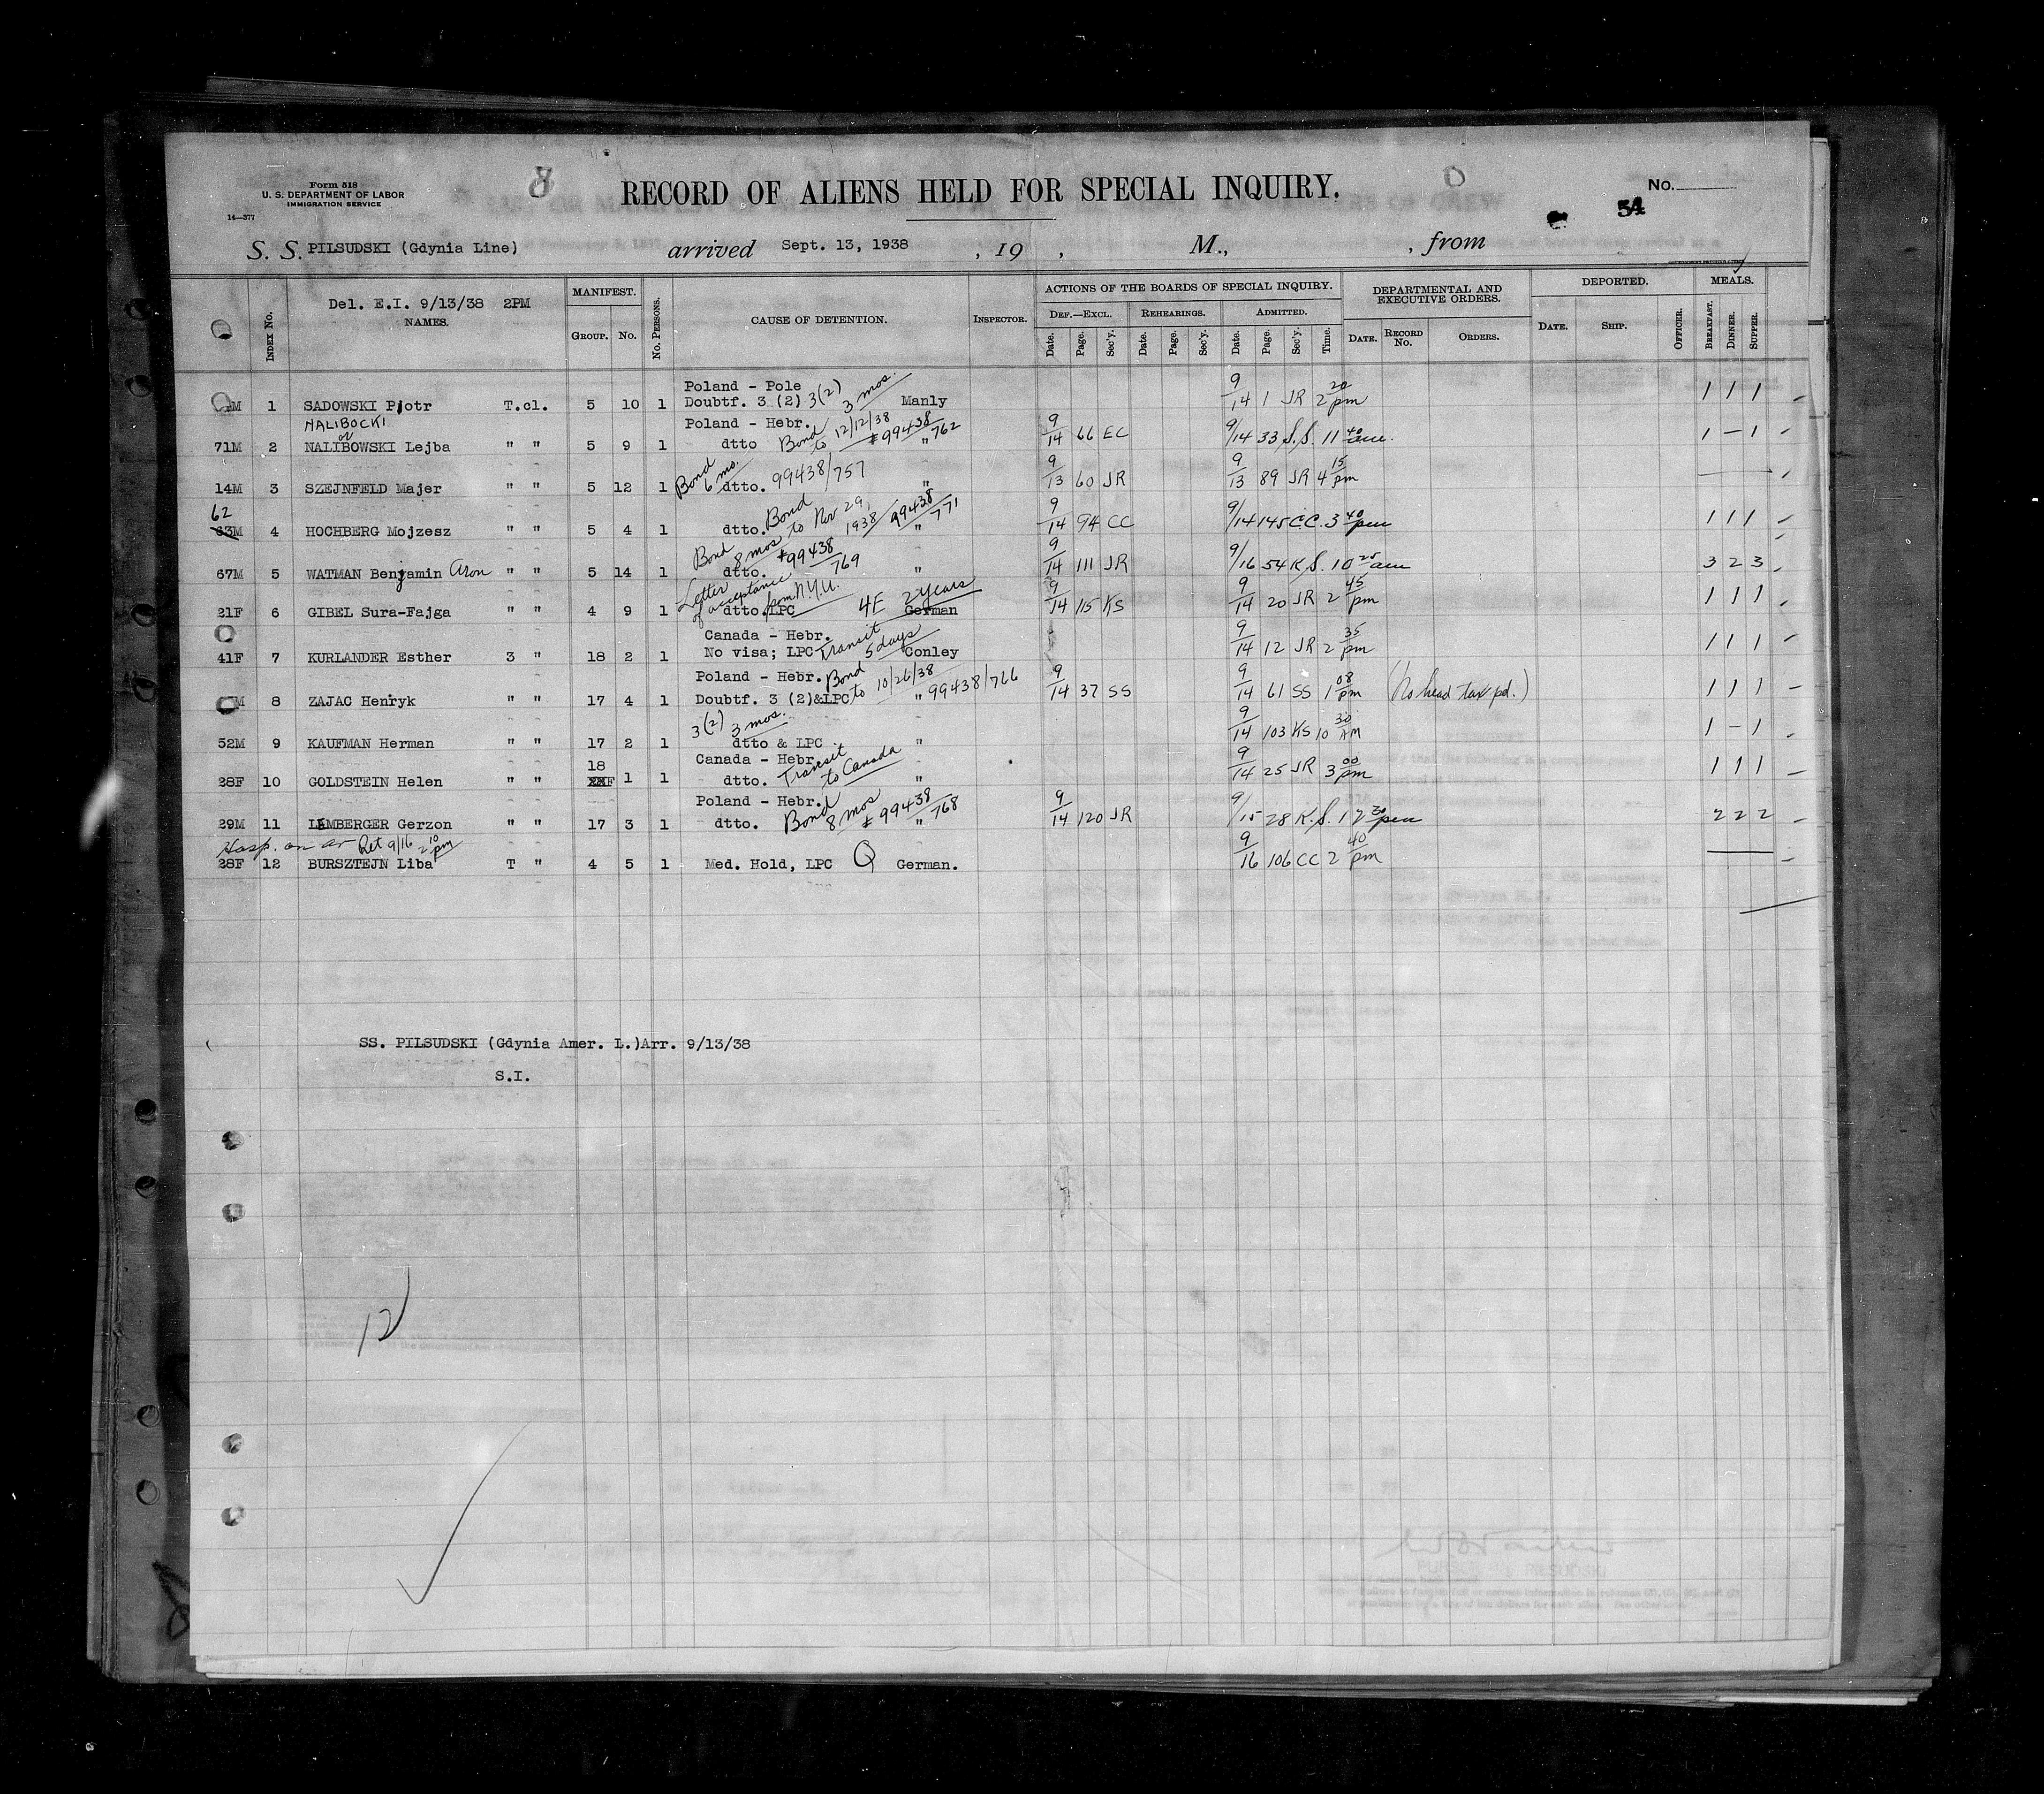 Form 518
U. S. DEPARTMENT OF LABOR
IMMIGRATION SERVICE
14—377
8
RECORD OF ALIENS HELD FOR SPECIAL INQUIRY.
No.
54
S. S. PILSUDSKI (Gdynia Line) arrived Sept. 13, 1938 , 19 , M., , from
Del. E.I. 9/13/38 2PM
INDEX No. NAMES. MANIFEST. GROUP. No. No. PERSONS. CAUSE OF DETENTION. INSPECTOR.
ACTIONS OF THE BOARDS OF SPECIAL INQUIRY. DEPARTMENTAL AND EXECUTIVE ORDERS. DEPORTED. MEALS.
DEF.—EXCL. REHEARINGS. ADMITTED.
Date. Page. Sec'y. Date. Page. Sec'y. Date. Page. Sec'y. Time. DATE. RECORD No. ORDERS. DATE. SHIP. OFFICER. BREAKFAST. DINNER. SUPPER.
Poland - Pole
M 1 SADOWSKI Pjotr T.cl. 5 10 1 Doubtf. 3 (2) 3(2) 3 mos. Manly 9/14 1 JR 2 20 pm 1 1 1
NALIBOCKI or Poland - Hebr.
71M 2 NALIBOWSKI Lejba " " 5 9 1 dtto Bond to 12/12/38 #99438/762 " 9/14 66 EC 9/14 33 S.S. 11 40 am. 1 - 1
14M 3 SZEJNFELD Majer " " 5 12 1 Bond 6 mo. dtto. 99438/757 " 9/13 60 JR 9/13 89 JR 4 15 pm
62
63M 4 HOCHBERG Mojzesz " " 5 4 1 dtto. Bond to Nov 29, 1938/ 99438/771 " 9/14 94 CC 9/14 145 C.C. 3 40 pm 1 1 1
67M 5 WATMAN Benjamin Aron " " 5 14 1 Bond 8 mos #99438/769 dtto. " 9/14 111 JR 9/16 54 K.S. 10 25 am 3 2 3
21F 6 GIBEL Sura-Fajga " " 4 9 1 Letter of acceptance from N.Y.U. dtto LPC 4E 2 years German 9/14 115 KS 9/14 20 JR 2 45 pm 1 1 1
Canada - Hebr.
41F 7 KURLANDER Esther 3 " 18 2 1 No visa; LPC Transit 5 days Conley 9/14 12 JR 2 35 pm 1 1 1
Poland - Hebr. Bond
M 8 ZAJAC Henryk " " 17 4 1 Doubtf. 3 (2)&LPC to 10/26/38 " 99438/766 9/14 37 SS 9/14 61 SS 1 08 pm (No head tax pd.) 1 1 1
3(2) 3 mos.
52M 9 KAUFMAN Herman " " 17 2 1 dtto & LPC " 9/14 103 KS 10 30 AM 1 - 1
18 Canada - Hebr.
28F 10 GOLDSTEIN Helen " " 1 1 dtto. Transit to Canada " 9/14 25 JR 3 00 pm 1 1 1
Poland - Hebr.
29M 11 LEMBERGER Gerzon " " 17 3 1 dtto. Bond 8 mos #99438/768 " 9/14 120 JR 9/15 28 K.S. 12 30 pm 2 2 2
Hosp. on ar Ret 9/16 2 10 pm
28F 12 BURSZTEJN Liba T " 4 5 1 Med. Hold, LPC Q German. 9/16 106 CC 2 40 pm
SS. PILSUDSKI (Gdynia Amer. L.)Arr. 9/13/38
S.I.
12